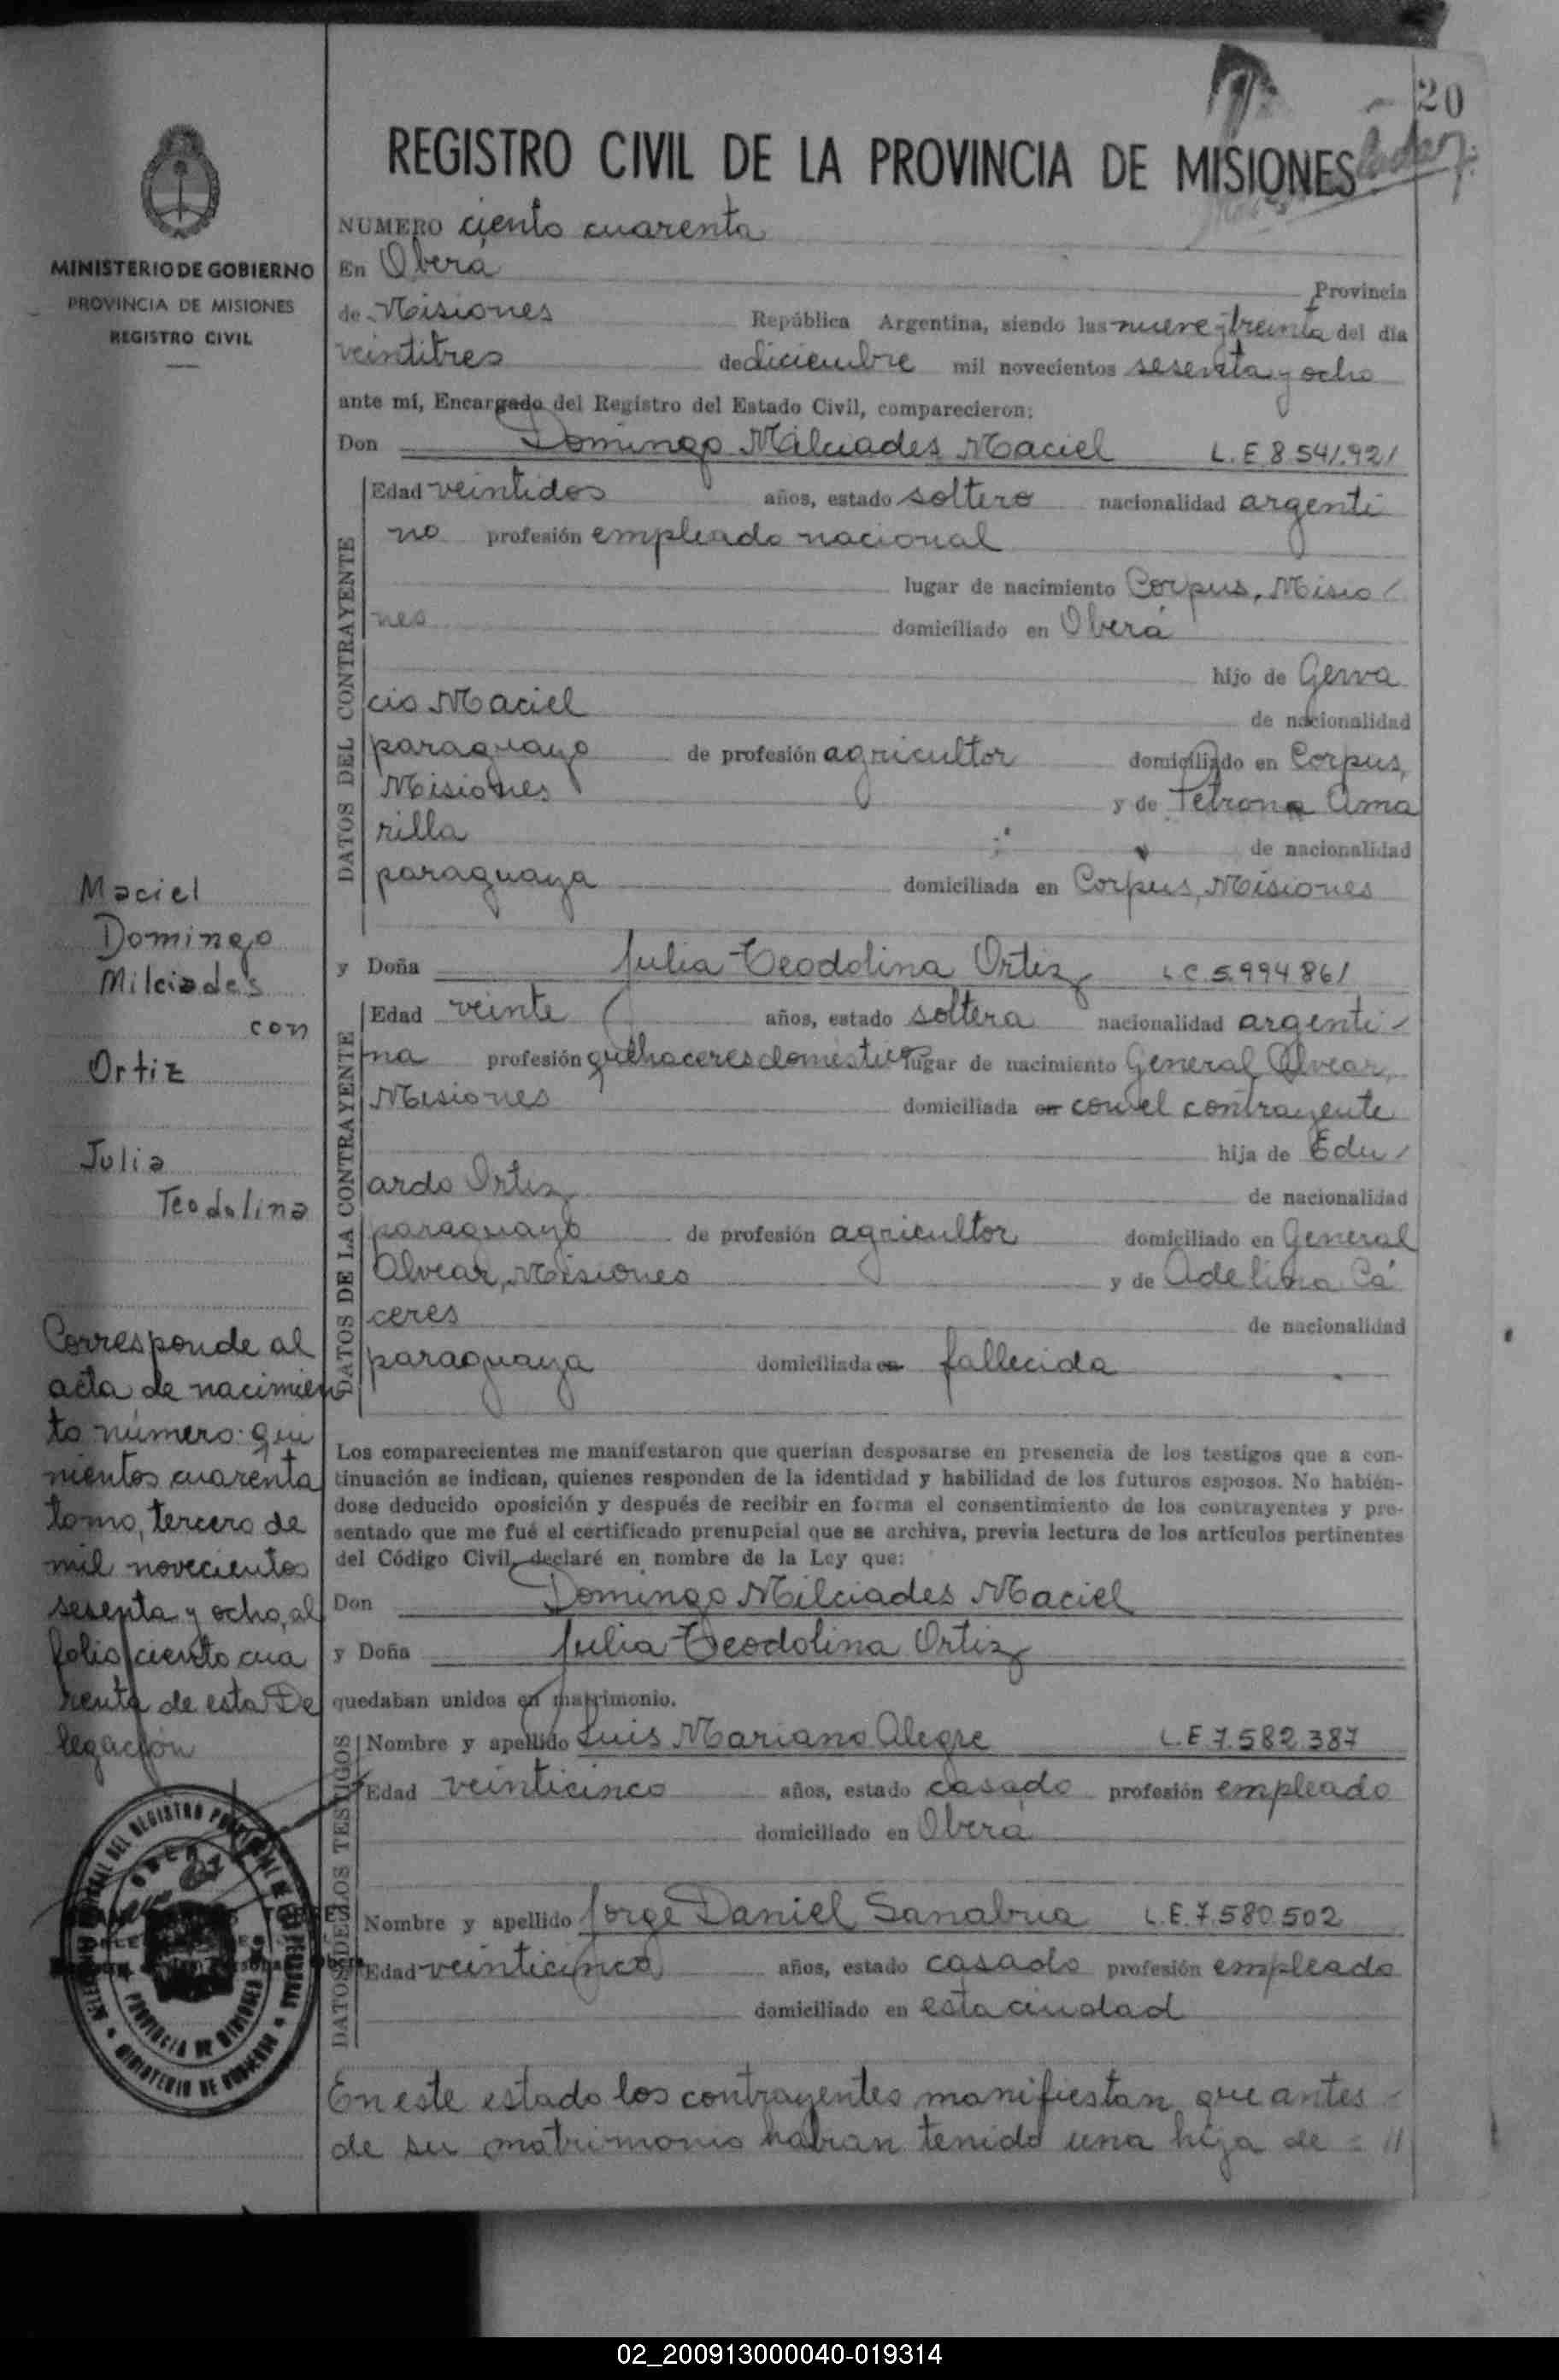 20
REGISTRO CIVIL DE LA PROVINCIA DE MISIONES
MINISTERIO DE GOBIERNO
PROVINCIA DE MISIONES
REGISTRO CIVIL
NUMERO ciento cuarenta
En Oberá
Provincia
de Misiones República Argentina, siendo las nueve y treinta del día
veintitres de diciembre mil novecientos sesenta y ocho
ante mí, Encargado del Registro del Estado Civil, comparecieron:
Don Domingo Milciades Maciel L.E 8.541.921
DATOS DEL CONTRAYENTE
Edad veintidos años, estado soltero nacionalidad argenti
no profesión empleado nacional
lugar de nacimiento Corpus, Misio/
nes domiciliado en Oberá
hijo de Gerva
cio Maciel de nacionalidad
paraguayo de profesión agricultor domiciliado en Corpus,
Misiones y de Petrona Ama
rilla de nacionalidad
paraguaya domiciliada en Corpus, Misiones
y Doña Julia Teodolina Ortiz L.C 5.994.861
DATOS DE LA CONTRAYENTE
Edad veinte años, estado soltera nacionalidad argenti-
na profesión quehaceres domésticos lugar de nacimiento General Alvear,
Misiones domiciliada en con el contrayente
hija de Edu/
ardo Ortiz de nacionalidad
paraguayo de profesión agricultor domiciliado en General
Alvear, Misiones y de Adelina Cá
ceres de nacionalidad
paraguaya domiciliada en fallecida
Maciel
Domingo
Milciades
con
Ortiz
Julia
Teodolina
Corresponde al
acta de nacimien
to número: qui
nientos cuarenta
tomo, tercero de
mil novecientos
sesenta y ocho, al
folio ciento cua
renta de esta De
legación
Los comparecientes me manifestaron que querían desposarse en presencia de los testigos que a con-
tinuación se indican, quienes responden de la identidad y habilidad de los futuros esposos. No habién-
dose deducido oposición y después de recibir en forma el consentimiento de los contrayentes y pre-
sentado que me fué el certificado prenupcial que se archiva, previa lectura de los artículos pertinentes
del Código Civil, declaré en nombre de la Ley que:
Don Domingo Milciades Maciel
y Doña Julia Teodolina Ortiz
quedaban unidos en matrimonio.
DATOS DE LOS TESTIGOS
Nombre y apellido Luis Mariano Alegre L.E 7.582.387
Edad veinticinco años, estado casado profesión empleado
domiciliado en Oberá
Nombre y apellido Jorge Daniel Sanabria L.E. 7.580.502
Edad veinticinco años, estado casado profesión empleado
domiciliado en esta ciudad
PROVINCIA DE MISIONES
MINISTERIO DE GOBIERNO
En este estado los contrayentes manifiestan que antes
de su matrimonio habian tenido una hija de = //
02_200913000040-019314